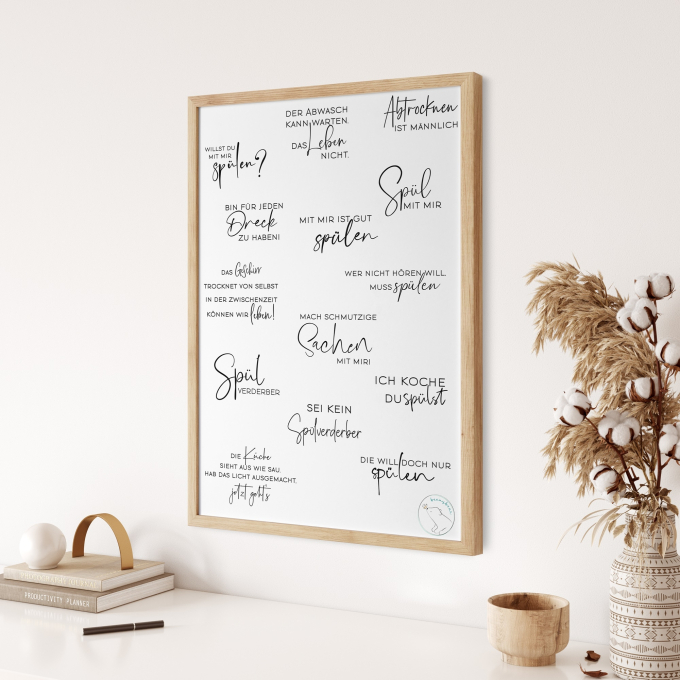 DER ABWASCH
KANN WARTEN.
DAS Leben
NICHT.
Abtrocknen
IST MÄNNLICH
WILLST DU
MIT MIR
spülen?
Spül
MIT MIR
BIN FÜR JEDEN
Dreck
ZU HABEN!
MIT MIR IST GUT
spülen
DAS Geschirr
TROCKNET VON SELBST
IN DER ZWISCHENZEIT
KÖNNEN WIR leben!
WER NICHT HÖREN WILL.
MUSS spülen
MACH SCHMUTZIGE
Sachen
MIT MIR!
Spül
VERDERBER
ICH KOCHE
DU spülst
SEI KEIN
Spülverderber
DIE Küche
SIEHT AUS WIE SAU.
HAB DAS LICHT AUSGEMACHT.
jetzt geht's
DIE WILL DOCH NUR
spülen
PRODUCTIVITY PLANNER